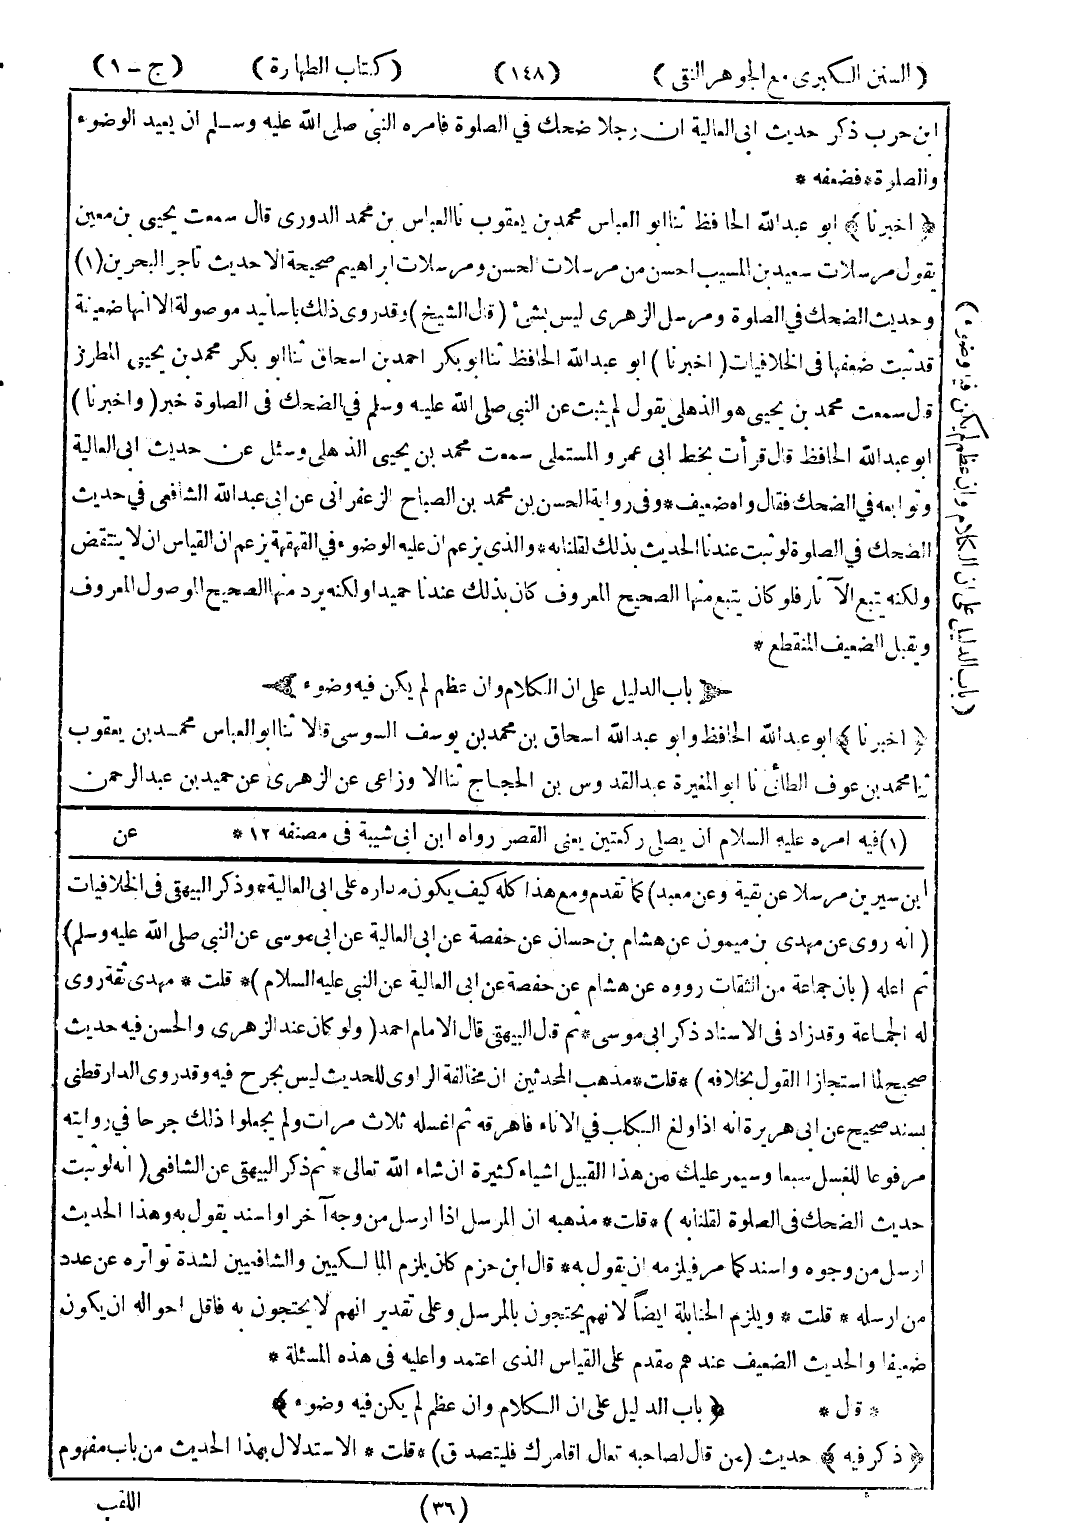 ( السنن الكبرى مع الجوهر النقى ) (١٤٨) ( كتاب الطهارة ) ( ج - ١ )
ابن حرب ذكر حديث ابى العالية ان رجلا ضحك فى الصلوة فامره النبى صلى الله عليه وسلم ان يعيد الوضوء
والصلوة * فضعفه *
﴿ اخبرنا ﴾ ابو عبدالله الحافظ ثنا ابو العباس محمد بن يعقوب نا العباس بن محمد الدورى قال سمعت يحيى بن معين
يقول مرسلات سعيد بن المسيب احسن من مرسلات الحسن ومرسلات ابراهيم صحيحة الا حديث تاجر البحرين (١)
وحديث الضحك فى الصلوة ومرسل الزهرى ليس بشئ ( قال الشيخ ) وقد روى ذلك باسانيد موصولة الا انها ضعيفة
قد ثبت ضعفها فى الخلافيات ( اخبرنا ) ابو عبد الله الحافظ ثنا ابو بكر احمد بن اسحاق ثنا ابو بكر محمد بن يحيى المطرز
قال سمعت محمد بن يحيى هو الذهلى يقول لم يثبت عن النبى صلى الله عليه وسلم فى الضحك فى الصلوة خبر ( واخبرنا )
ابو عبد الله الحافظ قال قرأت بخط ابى عمرو المستملى سمعت محمد بن يحيى الذهلى وسئل عن حديث ابى العالية
وتوابعه فى الضحك فقال واه ضعيف * وفى رواية الحسن بن محمد بن الصباح الزعفرانى عن ابى عبد الله الشافعى فى حديث
الضحك فى الصلوة لو ثبت عندنا الحديث بذلك لقلنا به * والذى يزعم ان عليه الوضوء فى القهقهة يزعم ان القياس ان لا ينتقض
ولكنه يتبع الآثار فلو كان يتبع منها الصحيح المعروف كان بذلك عندنا حميدا ولكنه يرد منها الصحيح الموصول المعروف
ويقبل الضعيف المنقطع *
باب الدليل على ان الكلام وان عظم لم يكن فيه وضوء
﴿ اخبرنا ﴾ ابو عبد الله الحافظ وابو عبد الله اسحاق بن محمد بن يوسف السوسى قالا ثنا ابو العباس محمد بن يعقوب
ثنا محمد بن عوف الطائى نا ابو المغيرة عبد القدوس بن الحجاج ثنا الاوزاعى عن الزهرى عن حميد بن عبد الرحمن
( باب الدليل على ان الكلام وان عظم لم يكن فيه وضوء )
(١) فيه امره عليه السلام ان يصلى ركعتين يعنى القصر رواه ابن ابى شيبة فى مصنفه ١٢ * عن
ابن سيرين مرسلا عن بقية وعن معبد ) كما تقدم ومع هذا كله كيف يكون مداره على ابى العالية * وذكر البيهقى فى الخلافيات
( انه روى عن مهدى بن ميمون عن هشام بن حسان عن حفصة عن ابى العالية عن ابى موسى عن النبى صلى الله عليه وسلم )
ثم اعله ( بان جماعة من الثقات رووه عن هشام عن حفصة عن ابى العالية عن النبى عليه السلام ) * قلت * مهدى ثقة روى
له الجماعة وقد زاد فى الاسناد ذكر ابى موسى * ثم قال البيهقى قال الامام احمد ( ولو كان عند الزهرى والحسن فيه حديث
صحيح لما استجازا القول بخلافه ) * قلت * مذهب المحدثين ان مخالفة الراوى للحديث ليس بجرح فيه وقد روى الدارقطنى
بسند صحيح عن ابى هريرة انه اذا ولغ الكلب فى الاناء فاهرقه ثم اغسله ثلاث مرات ولم يجعلوا ذلك جرحا فى روايته
مرفوعا للغسل سبعا وسيمر عليك من هذا القبيل اشياء كثيرة ان شاء الله تعالى * ثم ذكر البيهقى عن الشافعى ( انه لو ثبت
حديث الضحك فى الصلوة لقلنا به ) * قلت * مذهبه ان المرسل اذا ارسل من وجه آخر او اسند يقول به وهذا الحديث
ارسل من وجوه واسند كما مر فيلزمه ان يقول به * قال ابن حزم كان يلزم المالكيين والشافعيين لشدة تواتره عن عدد
من ارسله * قلت * ويلزم الحنابلة ايضاً لانهم يحتجون بالمرسل وعلى تقدير انهم لا يحتجون به فاقل احواله ان يكون
ضعيفا والحديث الضعيف عندهم مقدم على القياس الذى اعتمدوا عليه فى هذه المسئلة *
* قال * ﴿ باب الدليل على ان الكلام وان عظم لم يكن فيه وضوء ﴾
﴿ ذكر فيه ﴾ حديث ( من قال لصاحبه تعال اقامرك فليتصدق ) * قلت * الاستدلال بهذا الحديث من باب مفهوم
(٣٦) اللقب